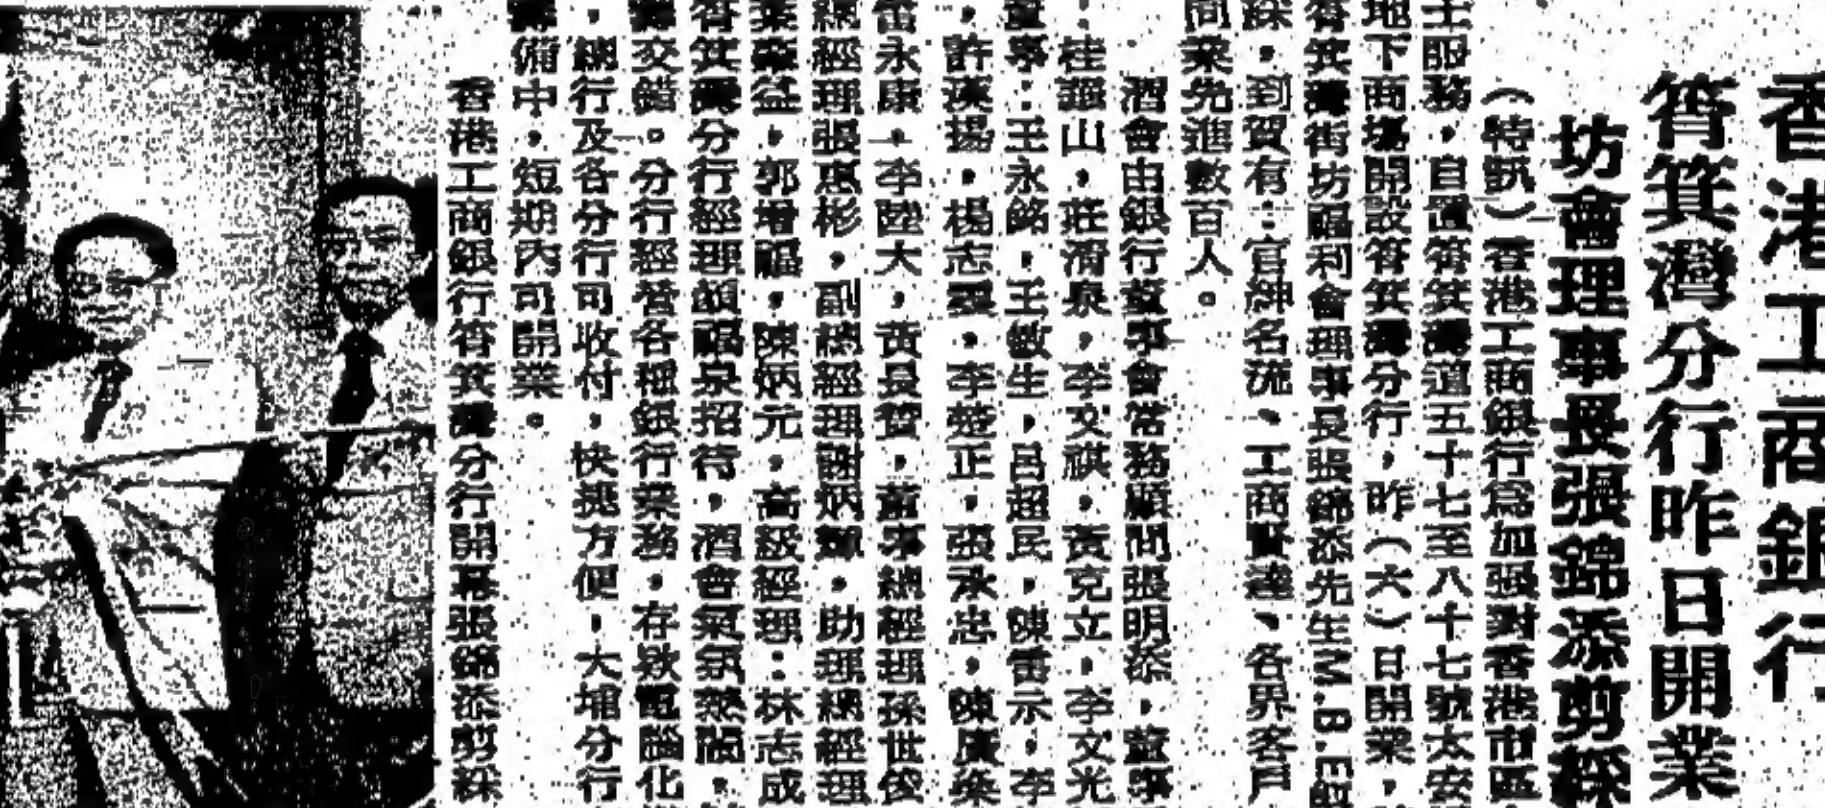 香港工商銀行
筲箕灣分行昨日開業
坊會理事長張錦添剪綵
（特訊）香港工商銀行為加強對香港市區
士服務，自置筲箕灣道五十七至八十七號太安
地下商場開設筲箕灣分行，昨（六）日開業，
筲箕灣街坊福利會理事長張錦添先生M.B.E剪
綵，到賀有：官紳名流、工商賢達、各界客戶
同業先進數百人。
酒會由銀行董事會常務顧問張明添，董事
：桂 山，莊清泉，李文祺，黃克立，李文光
董事：王永銘，王敏生，呂超民，陳雷示，李
，許漢揚，楊志雲，李楚正，張永忠，陳廣
雷永康，李陞大，黃長贊，董事總經理孫世俊
總經理張惠彬，副總經理謝炳 ，助理總經理
葉榮益，郭增福，陳炳元，高級經理：林志成
筲箕灣分行經理顏福泉招待，酒會氣氛熱鬧，
交錯。分行經營各種銀行業務，存款電腦化
，總行及各分行司收付，快捷方便，大埔分行
籌備中，短期內司開業。
香港工商銀行筲箕灣分行開幕張錦添剪綵